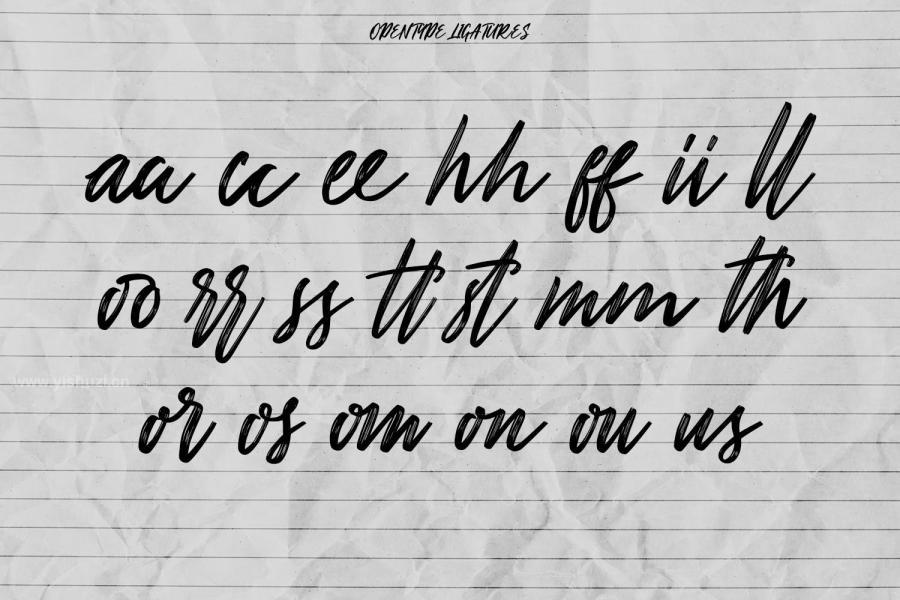 OPENTYPE LIGATURES
aa cc ee hh ff ii ll
oo rr ss tt st mm th
www.yishuzi.cn
or os om on ou us